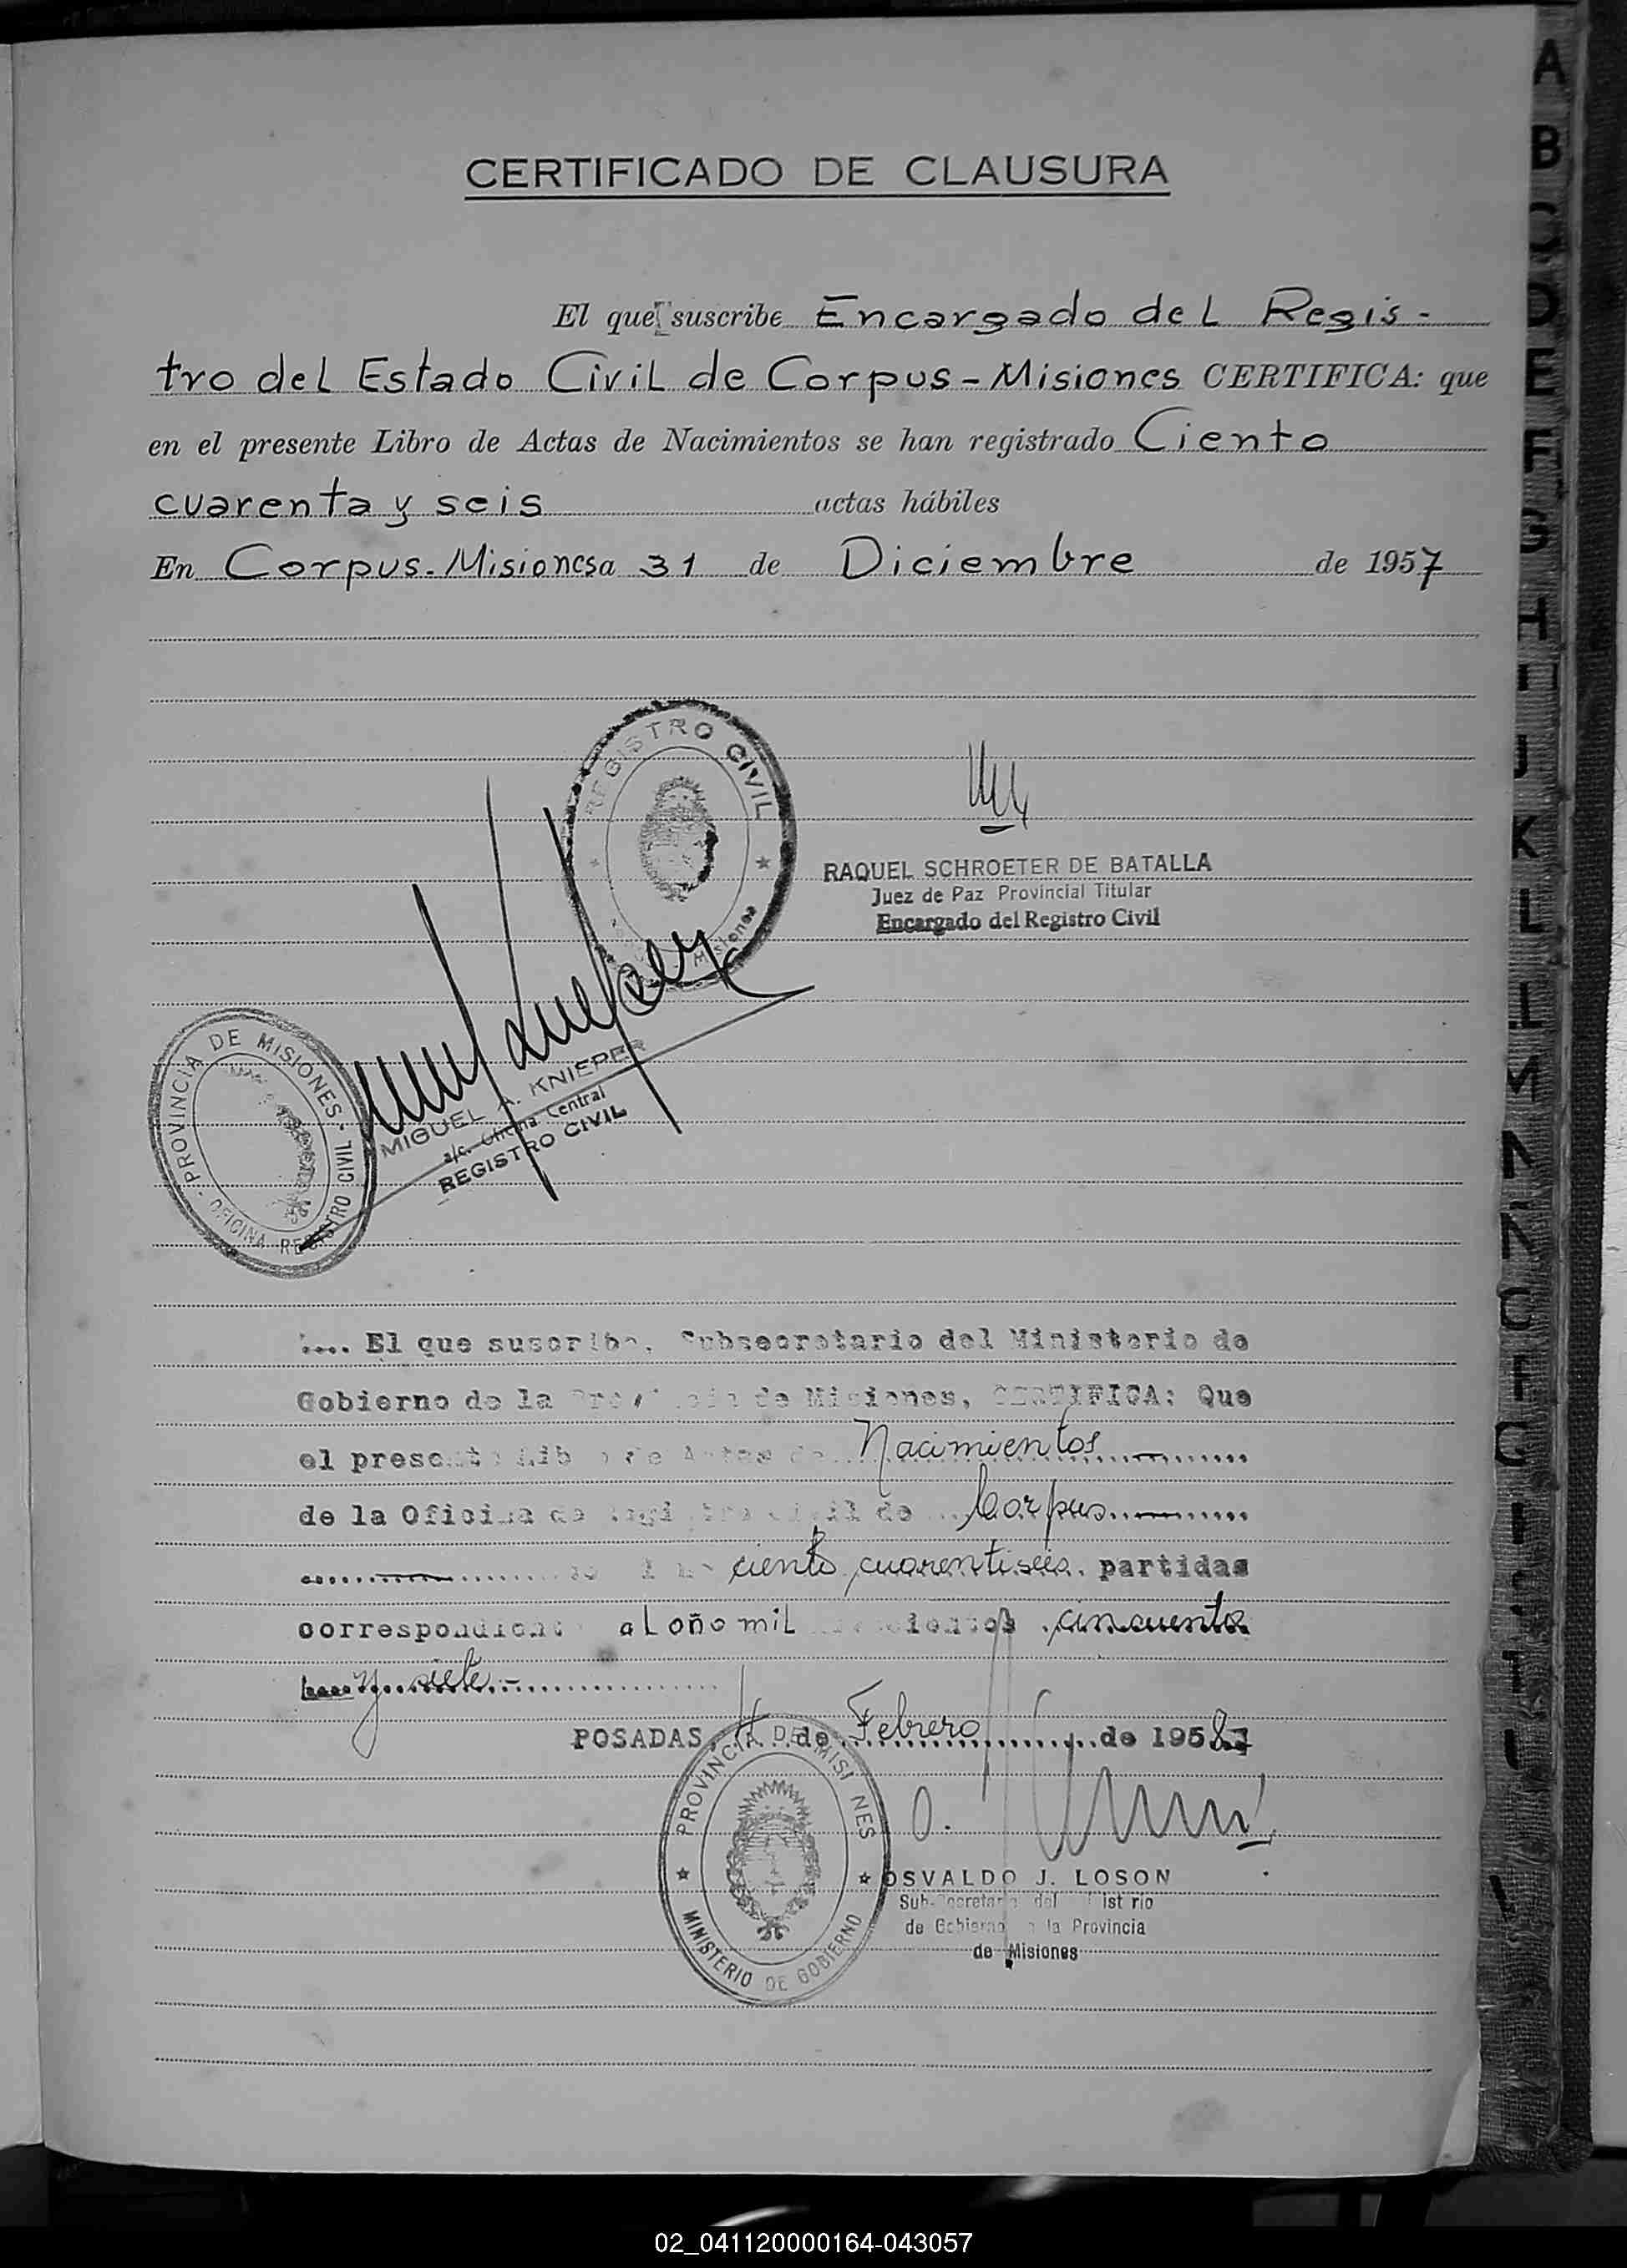 CERTIFICADO DE CLAUSURA
El que suscribe Encargado del Regis-
tro del Estado Civil de Corpus-Misiones CERTIFICA: que
en el presente Libro de Actas de Nacimientos se han registrado Ciento
cuarenta y seis actas hábiles
En Corpus-Misiones a 31 de Diciembre de 1957
REGISTRO CIVIL
Misiones
RAQUEL SCHROETER DE BATALLA
Juez de Paz Provincial Titular
Encargado del Registro Civil
PROVINCIA DE MISIONES - OFICINA REGISTRO CIVIL
MIGUEL A. KNIEPER
a/c. Oficina Central
REGISTRO CIVIL
.... El que suscribe, Subsecretario del Ministerio de
Gobierno de la Provincia de Misiones, CERTIFICA: Que
el presente Libro de Actas de Nacimientos
de la Oficina de Registro Civil de Corpus
ciento cuarentiseis partidas
correspondient al año mil cincuenta
y siete.-
POSADAS, de Febrero de 1958
PROVINCIA DE MISIONES
MINISTERIO DE GOBIERNO
OSVALDO J. LOSON
Sub-Secretario del
de Gobierno la Provincia
de Misiones
A
B
C
D
E
F
G
H
I
J
K
L
M
N
02_041120000164-043057